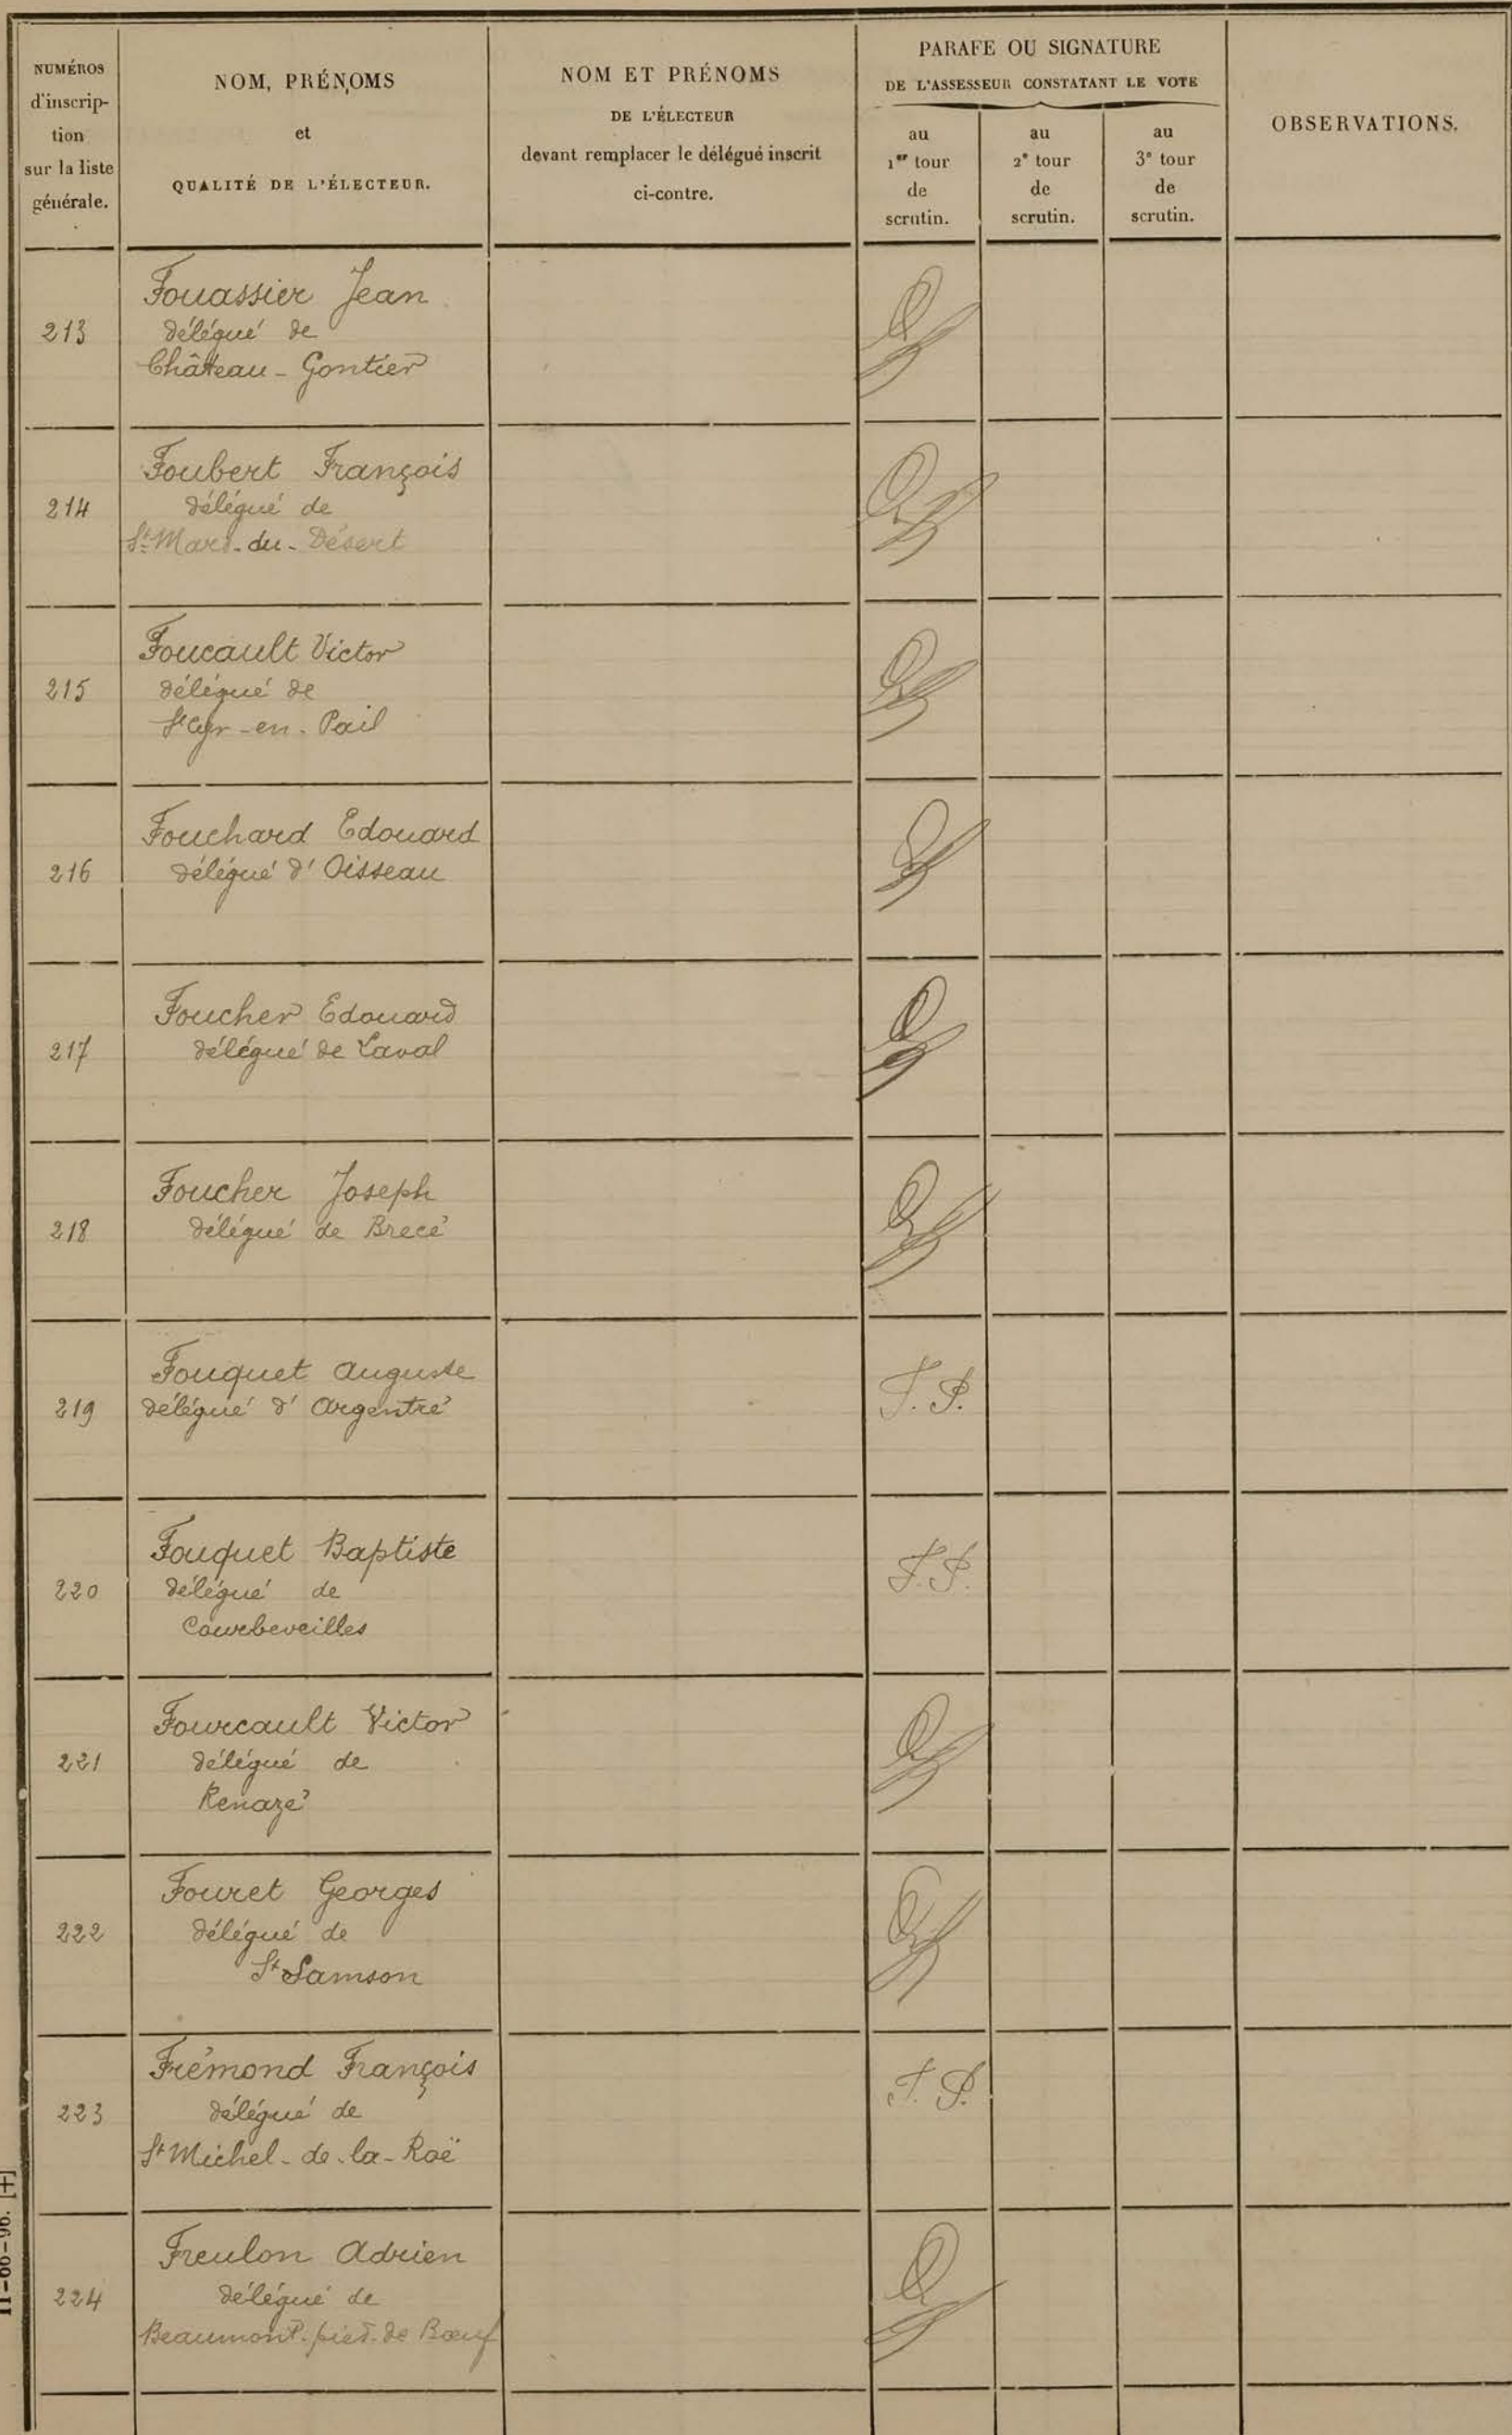 NUMÉROS
d'inscrip-
tion
sur la liste
générale.
NOM, PRÉNOMS
et
QUALITÉ DE L'ÉLECTEUR.
NOM ET PRÉNOMS
DE L'ÉLECTEUR
devant remplacer le délégué inscrit
ci-contre.
PARAFE OU SIGNATURE
DE L'ASSESSEUR CONSTATANT LE VOTE
au
1er tour
de
scrutin.
au
2e tour
de
scrutin.
au
3e tour
de
scrutin.
OBSERVATIONS.
Fouassier Jean
213 délégué de
Château-Gontier
Foubert François
214 délégué de
St Mars-du-Désert
Foucault Victor
215 délégué de
St Cyr-en-Pail
Fouchard Edouard
216 délégué d'Oisseau
Foucher Edouard
217 délégué de Laval
Foucher Joseph
218 délégué de Brecé
Fouquet Auguste
219 délégué d'Argentré F. P.
Fouquet Baptiste
220 délégué de F. P.
Courbeveilles
Fourcault Victor
221 délégué de
Renazé
Fouret Georges
222 délégué de
St Samson
Frémond François
223 délégué de F. P.
St Michel-de-la-Roë
Freulon Adrien
224 délégué de
Beaumont-pied-de-Bœuf
11-66-96. [+]